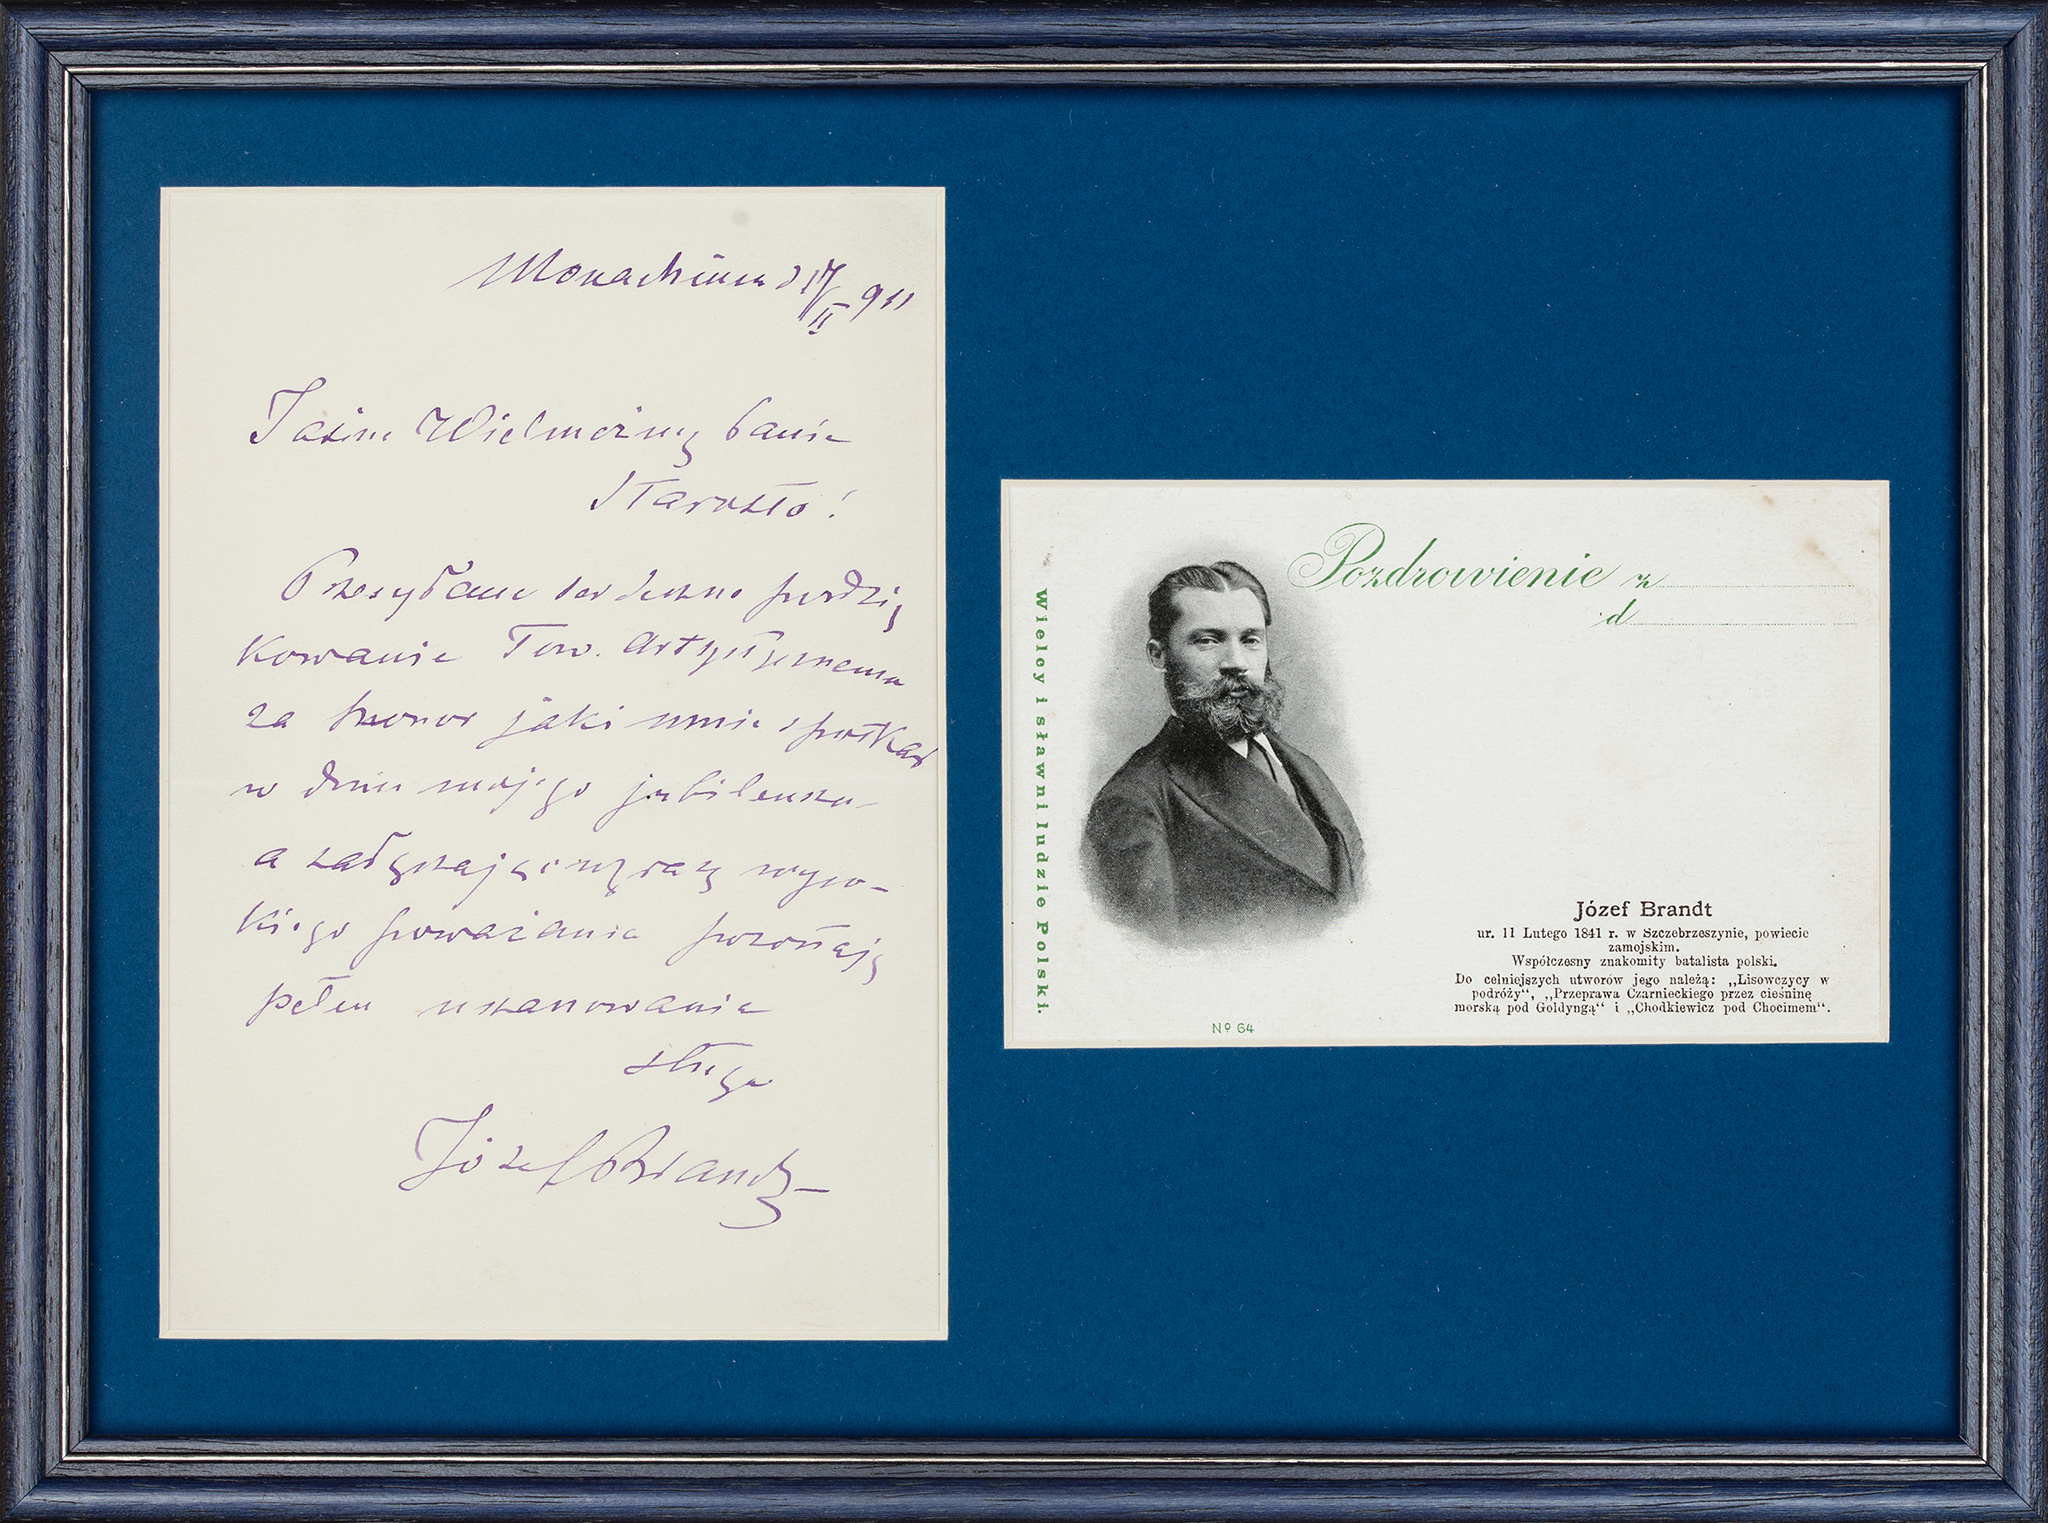 Monachium d 17/II 911
Jaśnie Wielmożny Panie
Starosto!
Przesyłam serdeczne podzię
kowanie Tow. Artystycznemu
za honor jaki mnie spotkał
w dniu mojego jubileuszu
a załączając wyrazy wyso-
kiego poważania pozostaję
pełen uszanowania
sługa
Józef Brandt
Wielcy i sławni ludzie Polski.
Pozdrowienie z
d
Józef Brandt
ur. 11 Lutego 1841 r. w Szczebrzeszynie, powiecie
zamojskim.
Współczesny znakomity batalista polski.
Do celniejszych utworów jego należą: „Lisowczycy w
podróży“, „Przeprawa Czarnieckiego przez cieśninę
morską pod Goldyngą“ i „Chodkiewicz pod Chocimem“.
Nº 64